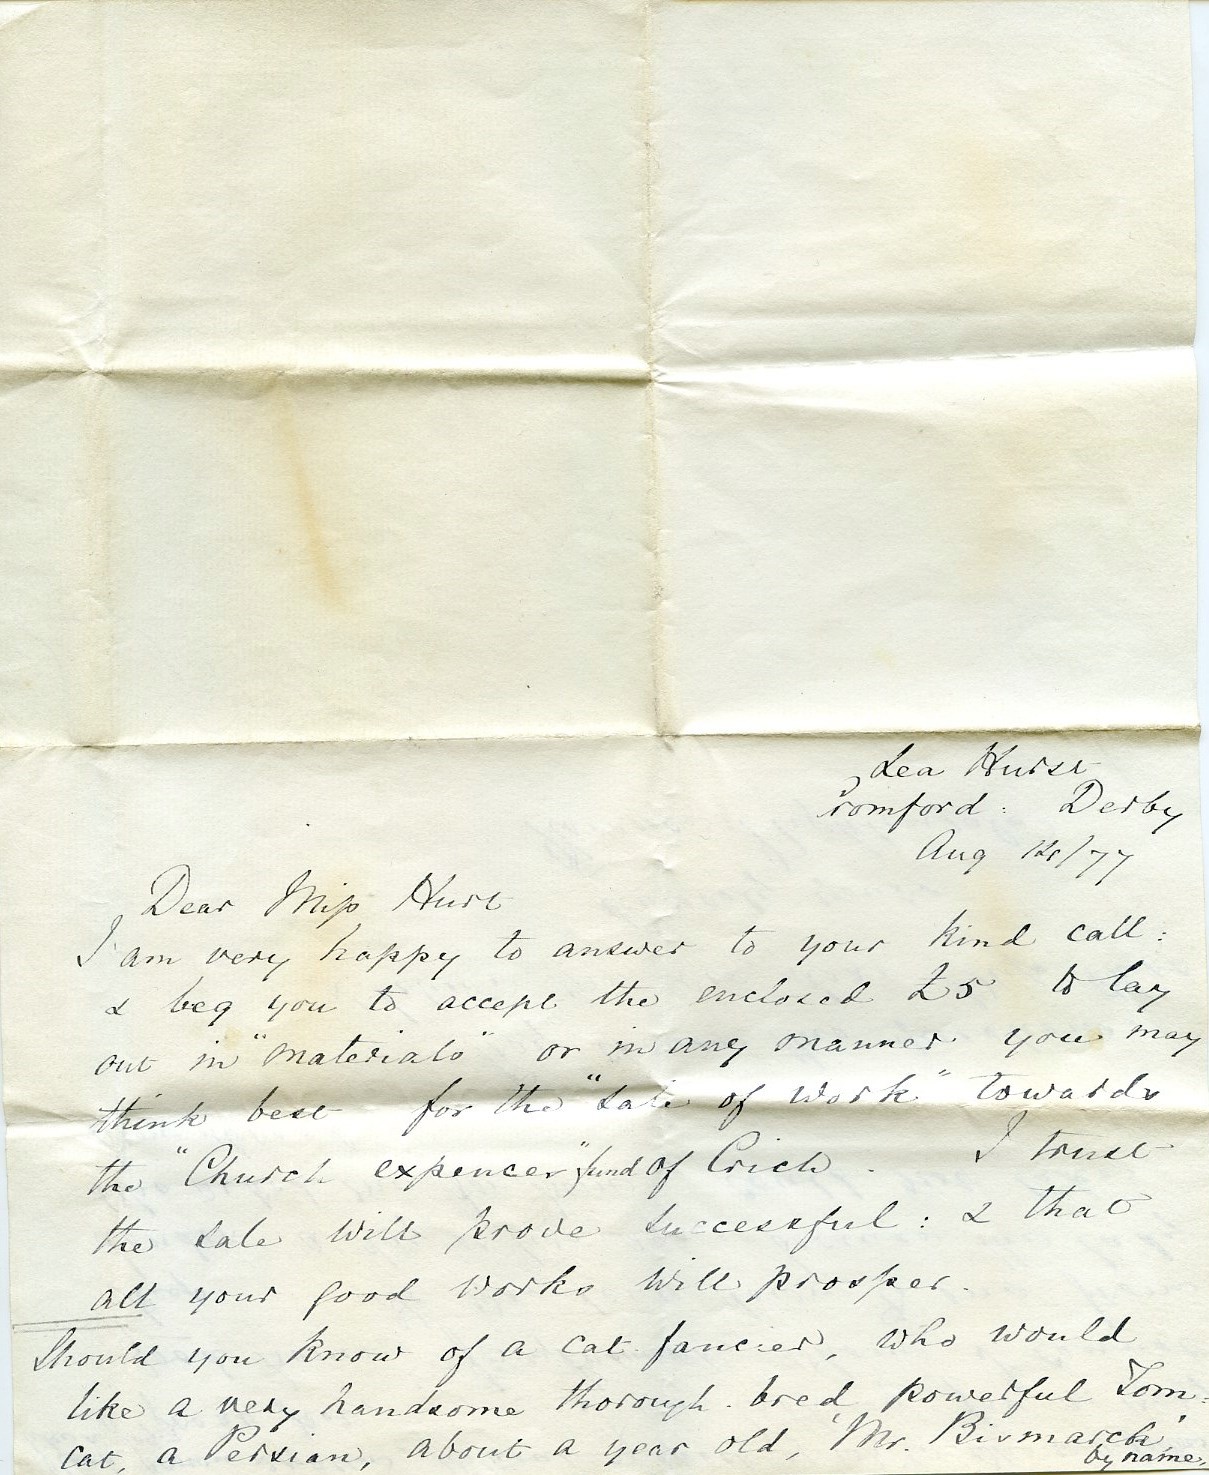 Lea Hurst
Cromford: Derby
Aug /77
Dear Miss Hurt
I am very happy to answer to your kind call:
& beg you to accept the enclosed £5 to lay
out in "materials" or in any manner you may
think best for the "sale of work" towards
the "Church expences" fund of Crich. I trust
the sale will prove successful: & that
all your good works will prosper.
Should you know of a cat-fancier, who would
like a very handsome thorough-bred powerful Tom-
cat, a Persian, about a year old, 'Mr. Bismarck'
by name,